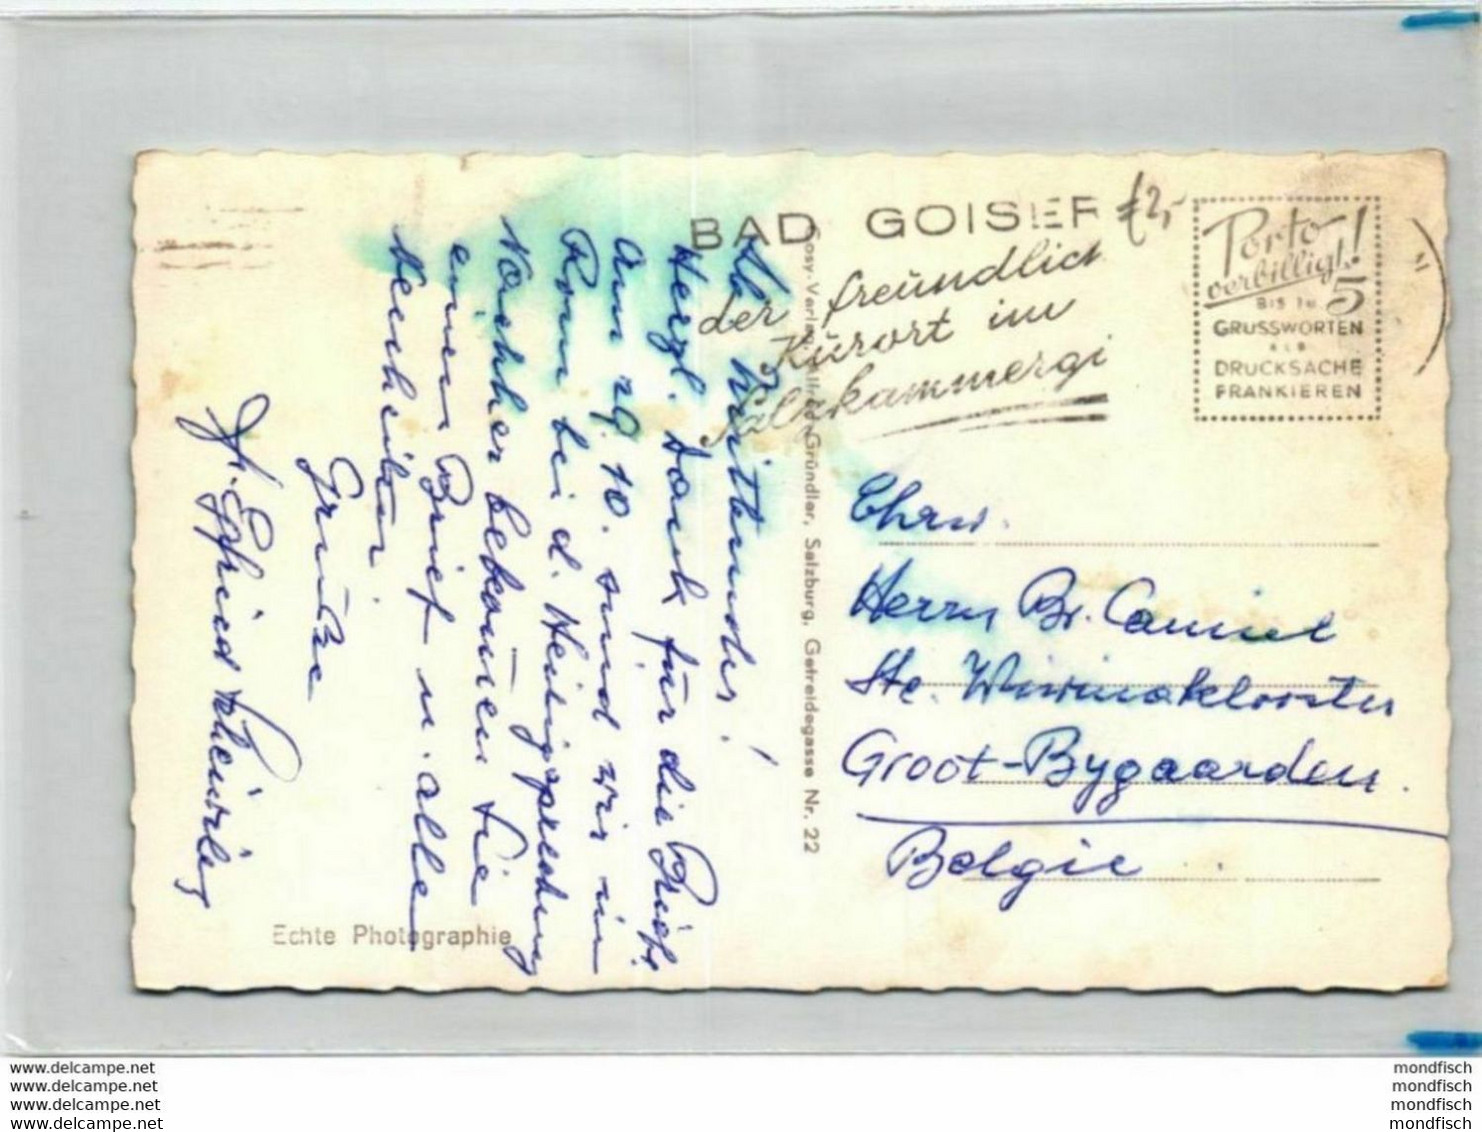 BAD GOISER
der freundlich
Kurort im
Salzkammergu
€ 2,-
Porto
verbilligt!
BIS ZU 5
GRUSSWORTEN
ALS
DRUCKSACHE
FRANKIEREN
Herzl. Dank für die
am 29. 10. sind wir in
Rom bei d. Heiligsprechung
Vorher bekommen Sie
einen Brief u. alle
Neuheiten
Grüße
Cosy-Verlag, Alfred Gründler, Salzburg, Getreidegasse Nr. 22
Ehrw.
Herrn Br. Camiel
Ste. Wivinaklooster
Groot-Bygaarden
Belgie
Echte Photographie
www.delcampe.net
www.delcampe.net
www.delcampe.net
www.delcampe.net
mondfisch
mondfisch
mondfisch
mondfisch